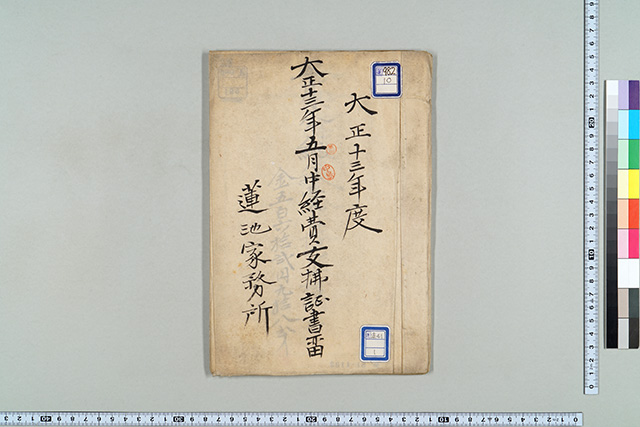 大正十三年度
大正十三年五月中経費支拂証書留
蓮池家務所
982
10
1